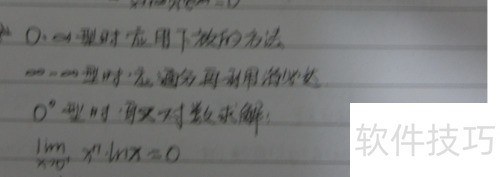 0·∞型时应用下放的方法
∞-∞型时应通分再利用洛必达
0⁰型时 取对数求解:
lim x→0⁺ xⁿ lnx = 0
软件技巧